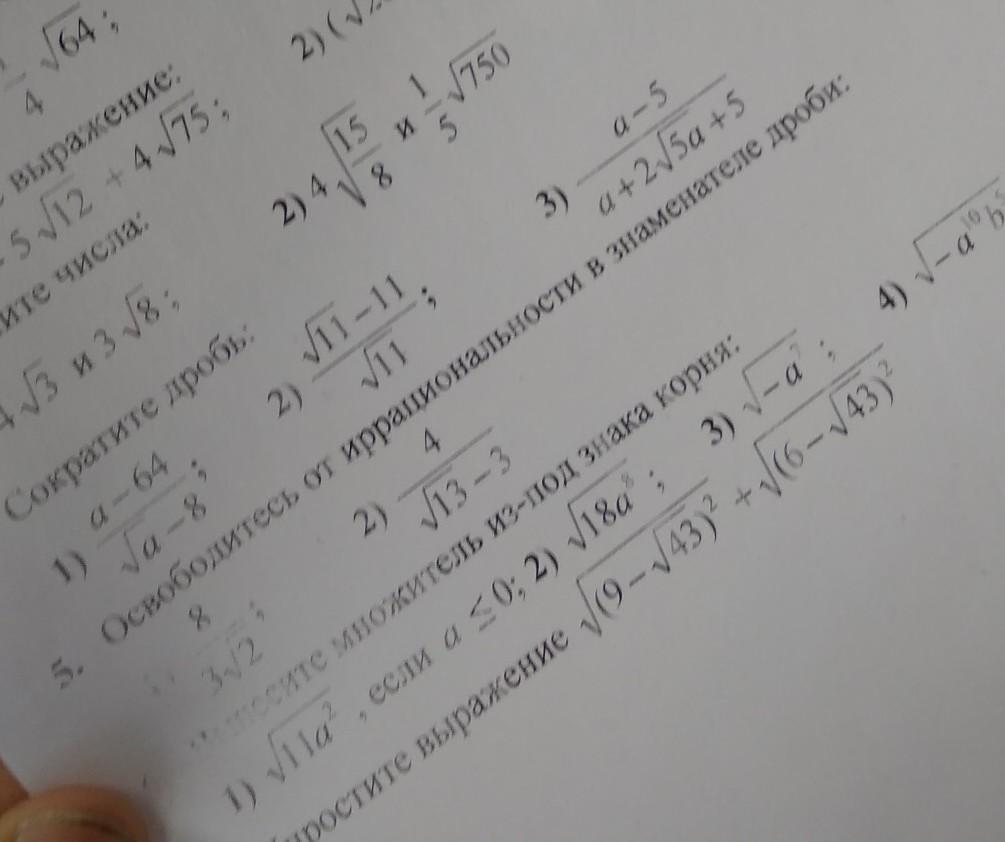 1/4 √64; 2) (√2
выражение:
- 5√12 + 4√75;
числа:
4√3 и 3√8; 2) 4√(15/8) и 1/5 √750
Сократите дробь:
1) (a − 64)/(√a − 8); 2) (√11 − 11)/√11; 3) (a − 5)/(a + 2√5a + 5)
5. Освободитесь от иррациональности в знаменателе дроби:
8/(3√2); 2) 4/(√13 − 3)
множитель из-под знака корня:
1) √11a², если a ≤ 0; 2) √18a⁸; 3) √−a⁷; 4) √−a¹⁰b
выражение √(9 − √43)² + √(6 − √43)²